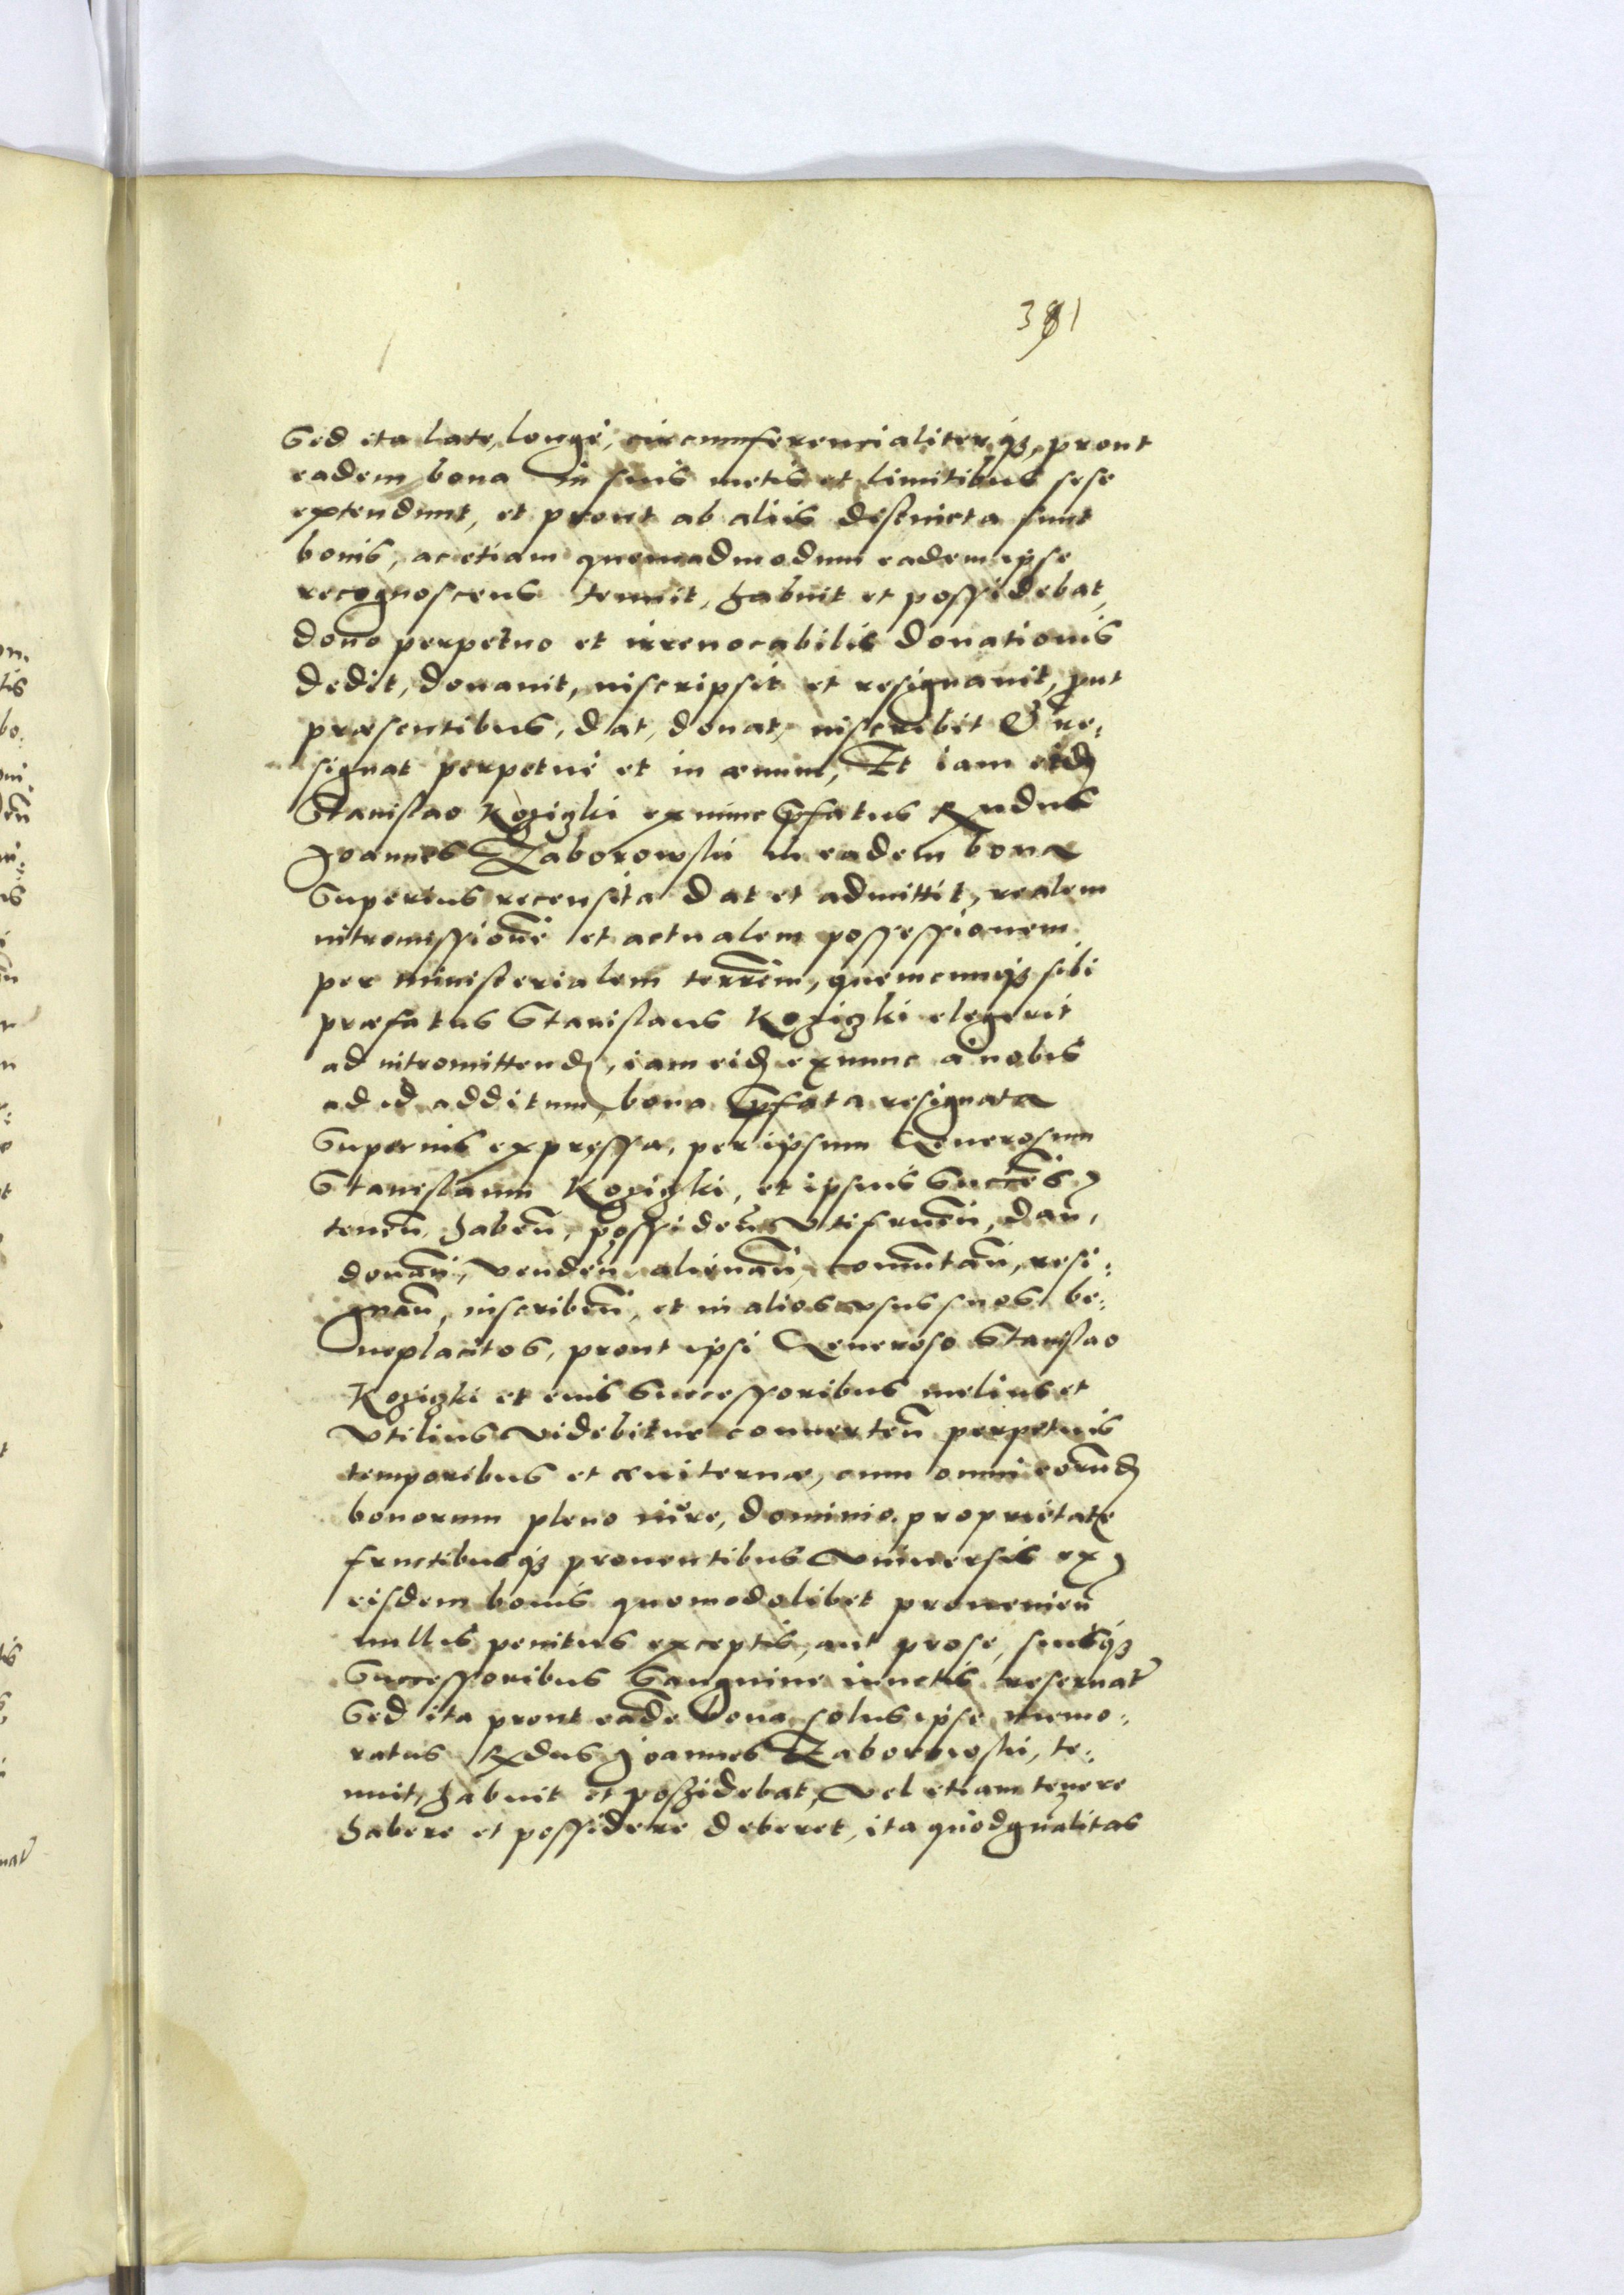 381
Sed ita late, longe, circumferencialiterqꝫ, prout
eadem bona in suis metis et limitibus sese
extendunt, et prout ab aliis distincta sunt
bonis, ac etiam quemadmodum eadem ipse
recognoscens tenuit, habuit et possidebat,
dono perpetuo et irreuocabilis donationis
dedit, donauit, inscripsit et resignauit, put
præsentibus, dat, donat, inscribit & re:
signat perpetue et in æuum, Et iam eidꝫ
Stanislao Kozigłki ex nunc pfatus Rndus
Joannes Zaborowski in eadem bona
superius recensita dat et admittit, realem
intromissionē et actualem possessionem
per ministerialem terrēm, quemcunqꝫ sibi
præfatus Stanislaus Kozigłki elegerit
ad intromittendꝫ, iam eidꝫ ex nunc a nobis
ad id additum, bona pfata resignata
superius expressa, per ipsum Generosum
Stanislaum Kozigłki, et ipsius Succēs
tenen̄, haben̄, possiden̄ Vtifruen̄, dan̄,
donan̄, Venden̄ alienan̄ comutan̄, resi:
gnan̄, inscriben̄, et in alios vsus suos be:
neplacitos, prout ipsi Generoso Stanislao
Kozigłki et eius Successoribus melius et
Vtilius Videbitur conuerten̄ perpetuis
temporibus et æuiternæ, cum omni eorundꝫ
bonorum pleno iure, dominio proprietate
fructibusqꝫ prouentibus Vniuersis ex
eisdem bonis quomodolibet prouenien̄
nullis penitus exceptis, aut pro se, suisqꝫ
Successoribus Sanguine iunctis reseruat
Sed ita prout eadē bona solus ipse memo:
ratus Rdus Joannes Zaborowski, te:
nuit, habuit et possidebat, Vel etiam tenere
habere et possidere deberet, ita quod qualitas